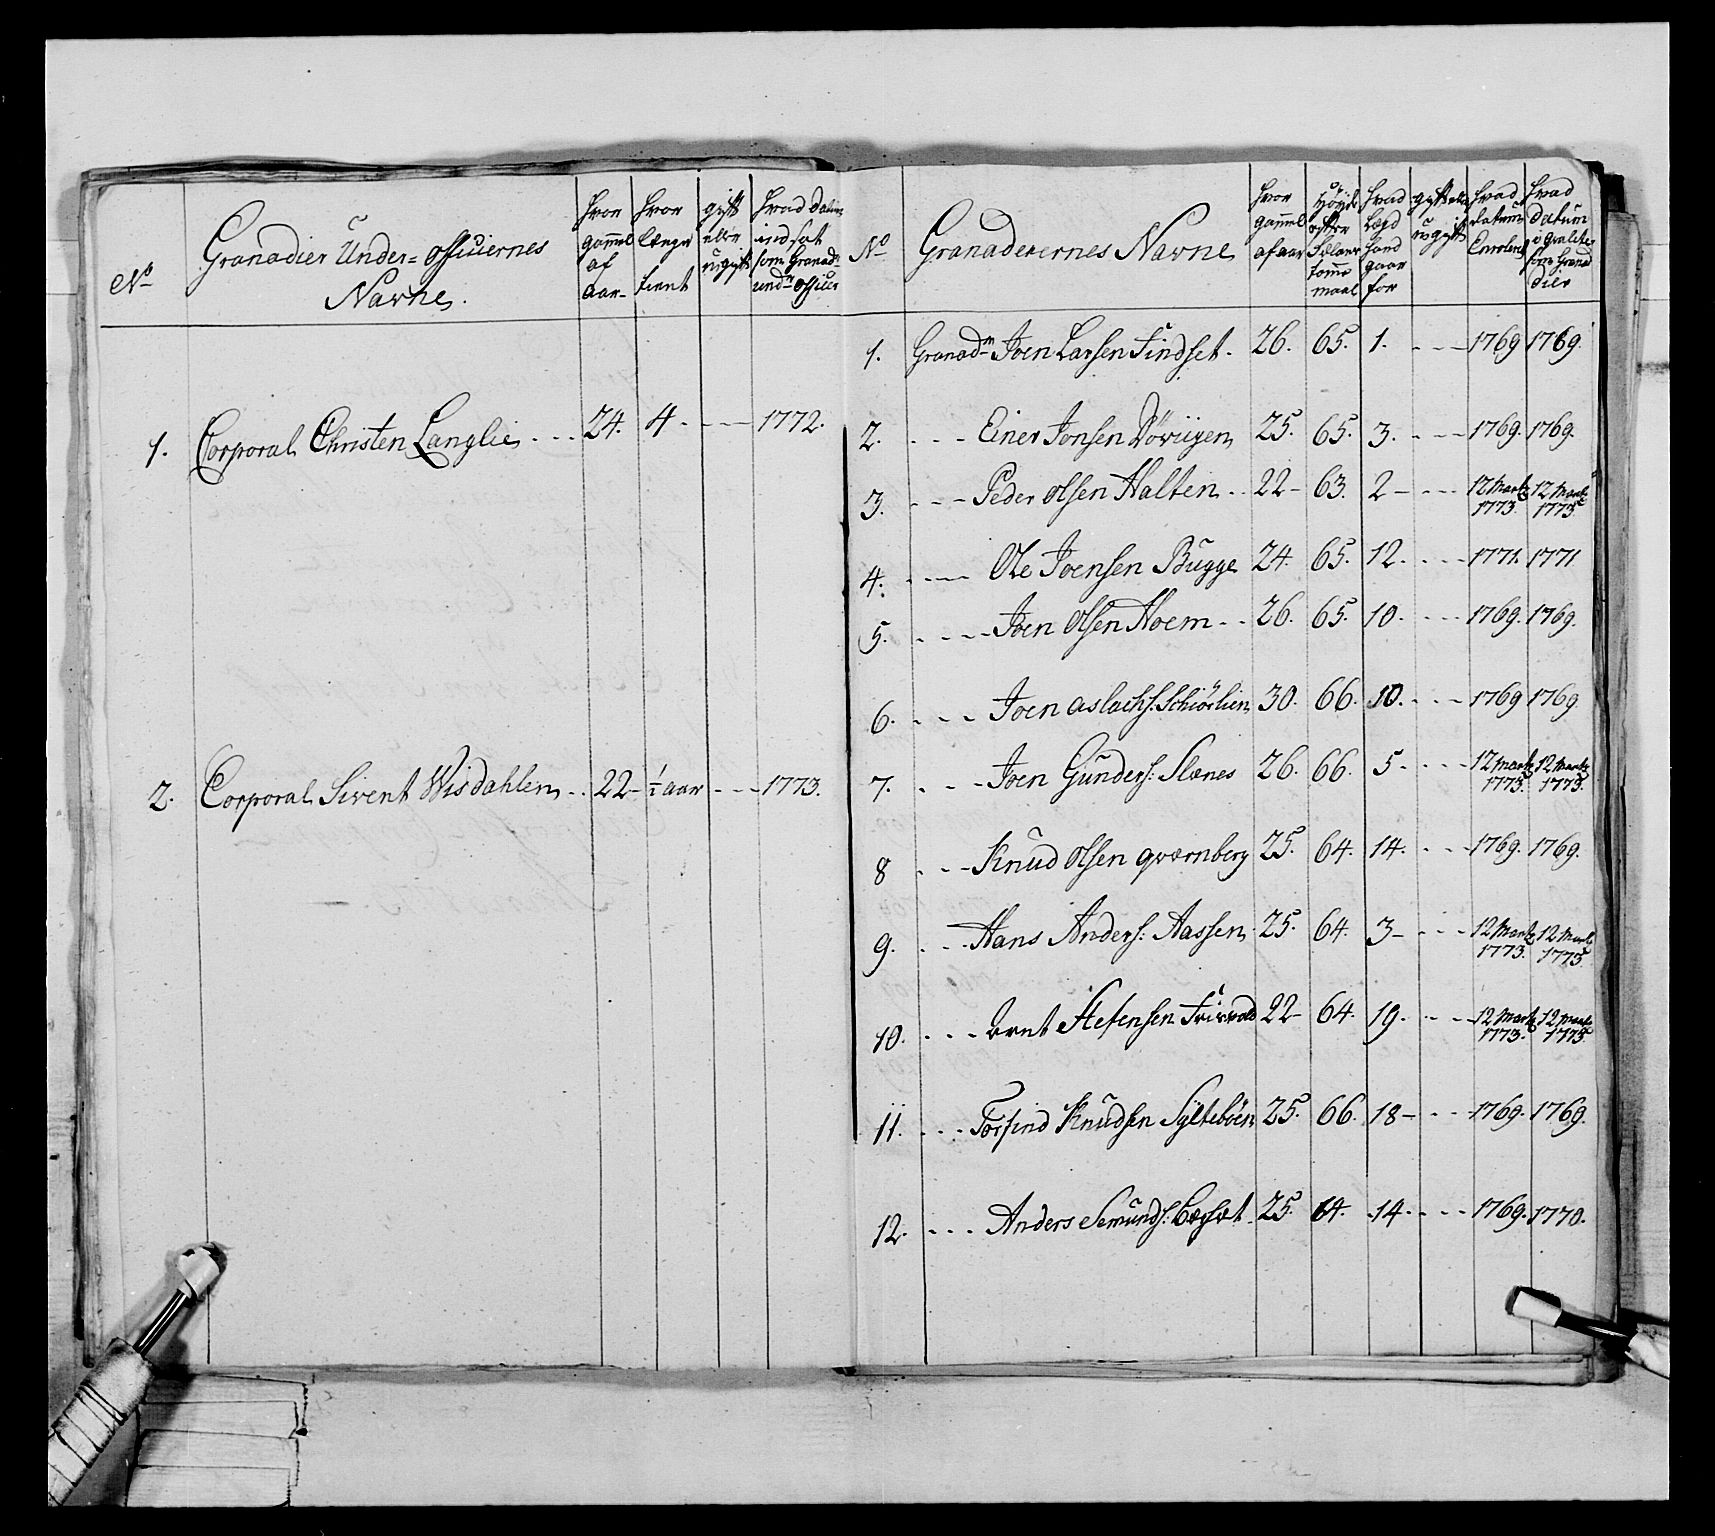 No
Granadier Under=officiernes
Navne.
hvor gammel af aar
hvor lenge tient
gift eller ugift
hvad datum indsat som Granadr underofficier
1. Corporal Christen Langlie ... 24. 4. --- 1772.
2. Corporal Sivent Wisdahlen .. 22 - ½ aar --- 1773.
No
Granaderernes Navne
hvor gammel af aar
Höyde efter Sælans tomme maal
hvad Lægd hand gaar for
gift eller ugift
hvad datum Enroleret
hvad datum i qvalitet som Granadier
1. Granadr Joen Larsen Findset. 26. 65. 1. --- 1769 1769.
2. --- Einer Jonsen Dövigen 25. 65. 3. --- 1769. 1769.
3. --- Peder Olsen Halten .. 22 - 63. 2 - --- 12 Martz 1773. 12 Martz 1773.
4. --- Ole Joensen Bugge 24. 65. 12. --- 1771. 1771
5. --- Joen Olsen Hoem .. 26. 65. 10. --- 1769. 1769.
6. --- Joen Aslachs: Schiörlien 30. 66. 10. --- 1769 1769.
7. --- Joen Gunders: Slenes 26. 66. 5 --- 12 Martz 1773. 12 Martz 1773.
8 --- Knud Olsen qværnberg 25. 64. 14. --- 1769. 1769.
9. --- Hans Anders: Aassen. 25. 64. 3 - --- 12 Martz 1773. 12 Martz 1773.
10. --- Arnt Stefensen 22 - 64. 19. --- 12 Martz 1773. 12 Martz 1773.
11. --- Torfind Knudsen Sylteböen 25. 66. 18 - --- 1769. 1769.
12. --- Anders Semunds: 25. 64. 14. --- 1769. 1770.